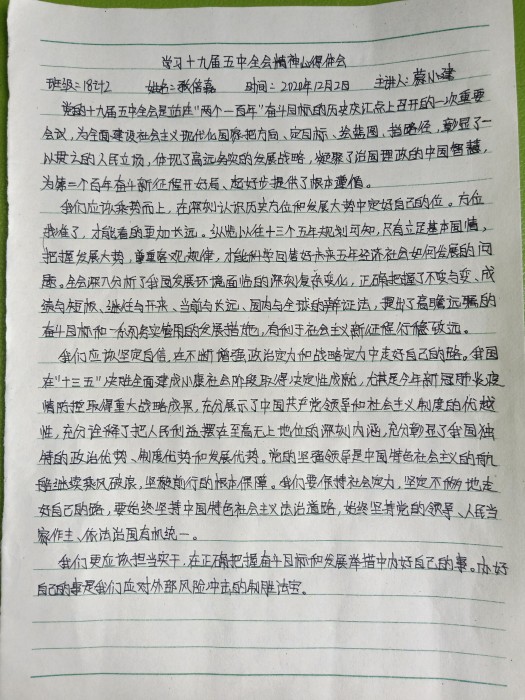 学习十九届五中全会精神心得体会
班级:18计2 姓名: 时间:2020年12月2日 主讲人:
党的十九届五中全会是站在"两个一百年"奋斗目标的历史交汇点上召开的一次重要
会议,为全面建设社会主义现代化国家把方向、定目标、绘蓝图、指路径,彰显了一
以贯之的人民立场,体现了高远务实的发展战略,凝聚了治国理政的中国智慧,
为第二个百年奋斗新征程开好局、起好步提供了根本遵循。
我们应该乘势而上,在深刻认识历史方位和发展大势中定好自己的位。方位
找准了,才能看的更加长远。纵览以往十三个五年规划可知,只有立足基本国情,
把握发展大势,尊重客观规律,才能科学回答好未来五年经济社会如何发展的问
题。全会深入分析了我国发展环境面临的深刻复杂变化,正确把握了不变与变、成
绩与短板、继往与开来、当前与长远、国内与全球的辩证法,提出了高瞻远瞩的
奋斗目标和一系列务实管用的发展措施,有利于社会主义新征程行稳致远。
我们应该坚定自信,在不断增强政治定力和战略定力中走好自己的路。我国
在"十三五"决胜全面建成小康社会阶段取得决定性成就,尤其是今年新冠肺炎疫
情防控取得重大战略成果,充分展示了中国共产党领导和社会主义制度的优越
性,充分诠释了把人民利益摆在至高无上地位的深刻内涵,充分彰显了我国独
特的政治优势、制度优势和发展优势。党的坚强领导是中国特色社会主义的航
船继续乘风破浪,坚毅前行的根本保障。我们要保持社会定力,坚定不移地走
好自己的路,要始终坚持中国特色社会主义法治道路,始终坚持党的领导、人民当
家作主、依法治国有机统一。
我们更应该担当实干,在正确把握奋斗目标和发展举措中办好自己的事。办好
自己的事是我们应对外部风险冲击的制胜法宝。